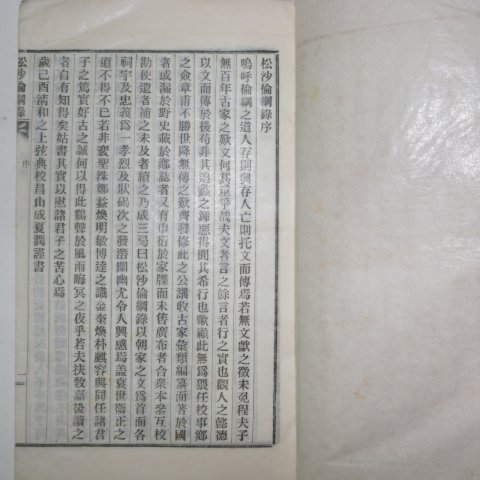 松沙倫綱錄序
嗚呼倫綱之道人存則與存人亡則托文而傳焉若無文獻之徵未免程夫子
無百年古家之歎文何其重乎哉夫文者言之餘言者行之實也觀人之懿德
以文而傳於後苟非其過蠡之鍾惡得聞其希行也歟顧此無爲猥任校事鄉
之僉章甫不勝世降無傳之歎齊發修此之公議收古家彙類編纂而著於國
者或漏於野史載於鄕誌者又有巾衍於家牒而未售廣布者合衆本叅互校
勘使遺者補之未及者續之乃成三局曰松沙倫綱錄以朝家之文爲首而各
祠宇及忠義爲一孝烈及狀碣次之發潛闡幽尤令人興感焉盖衰世衛正之
道不得不已若非裵聖洙鄭益煥明敏博達之識金奎煥朴麒容與同任諸君
子之篤實好古之誠何以得此鷄聲於風雨晦冥之夜乎若夫扶敎嘉後讀之
者自有知得矣姑書其實以慰諸君子之苦心焉
歲己酉淸和之上弦典校昌山成夏潤謹書
松沙倫綱錄
序
一